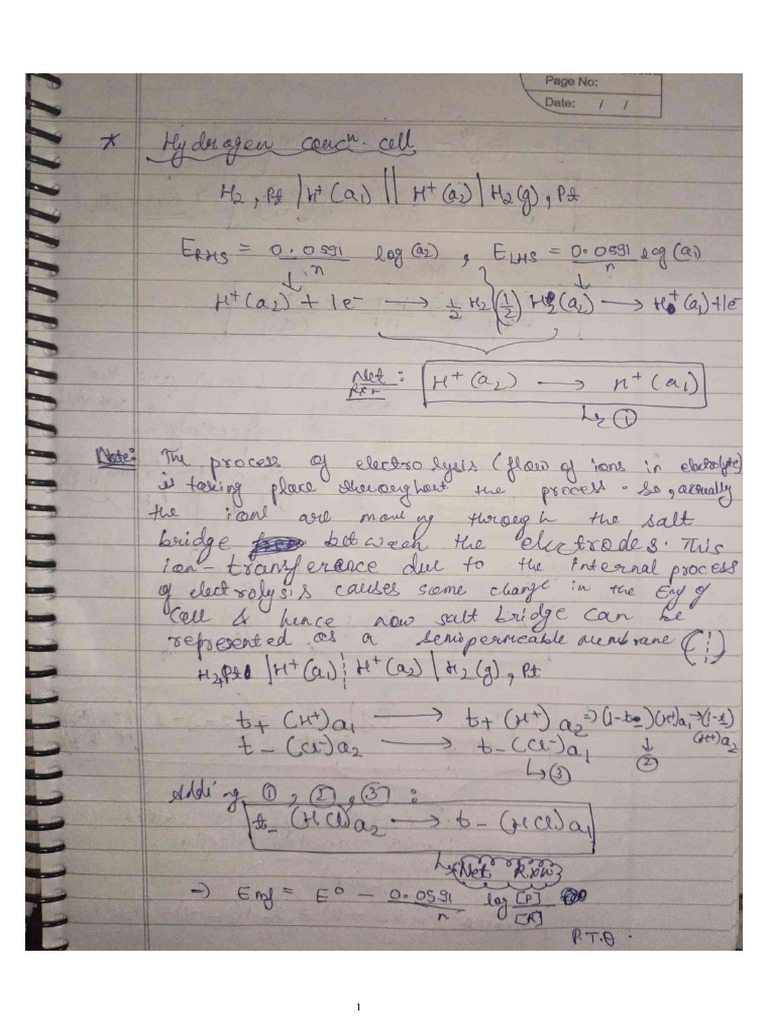 Page No:
Date: / /
* Hydrogen concⁿ. cell
H2, Pt | H+(a1) || H+(a2) | H2(g), Pt
ERHS = 0.0591/n log(a2) , ELHS = 0.0591/n log(a1)
H+(a2) + 1e- → 1/2 H2 (1/2) H2(a2) → H+(a1)+1e-
Net Rxn : H+(a2) → H+(a1)
↳ ①
Note: The process of electrolysis (flow of ions in electrolyte)
is taking place throughout the process. So, actually
the ions are moving through the salt
bridge between the electrodes. This
ion-transferance due to the internal process
of electrolysis causes some change in the Emf of
cell & hence now salt bridge can be
represented as a semipermeable membrane (¦)
H2,Pt | H+(a1) ¦ H+(a2) | H2(g), Pt
t+ (H+)a1 → t+ (H+) a2 ⇒ (1-t-)(H+)a1 → (1-t-)(H+)a2
↓ ②
t- (Cl-)a2 → t- (Cl-)a1
↳ ③
Adding ①, ②, ③ :
t- (HCl)a2 → t- (HCl)a1
↳ Net Rxn
⇒ Emf = E° - 0.0591/n log [P]/[R]
P.T.O.
1